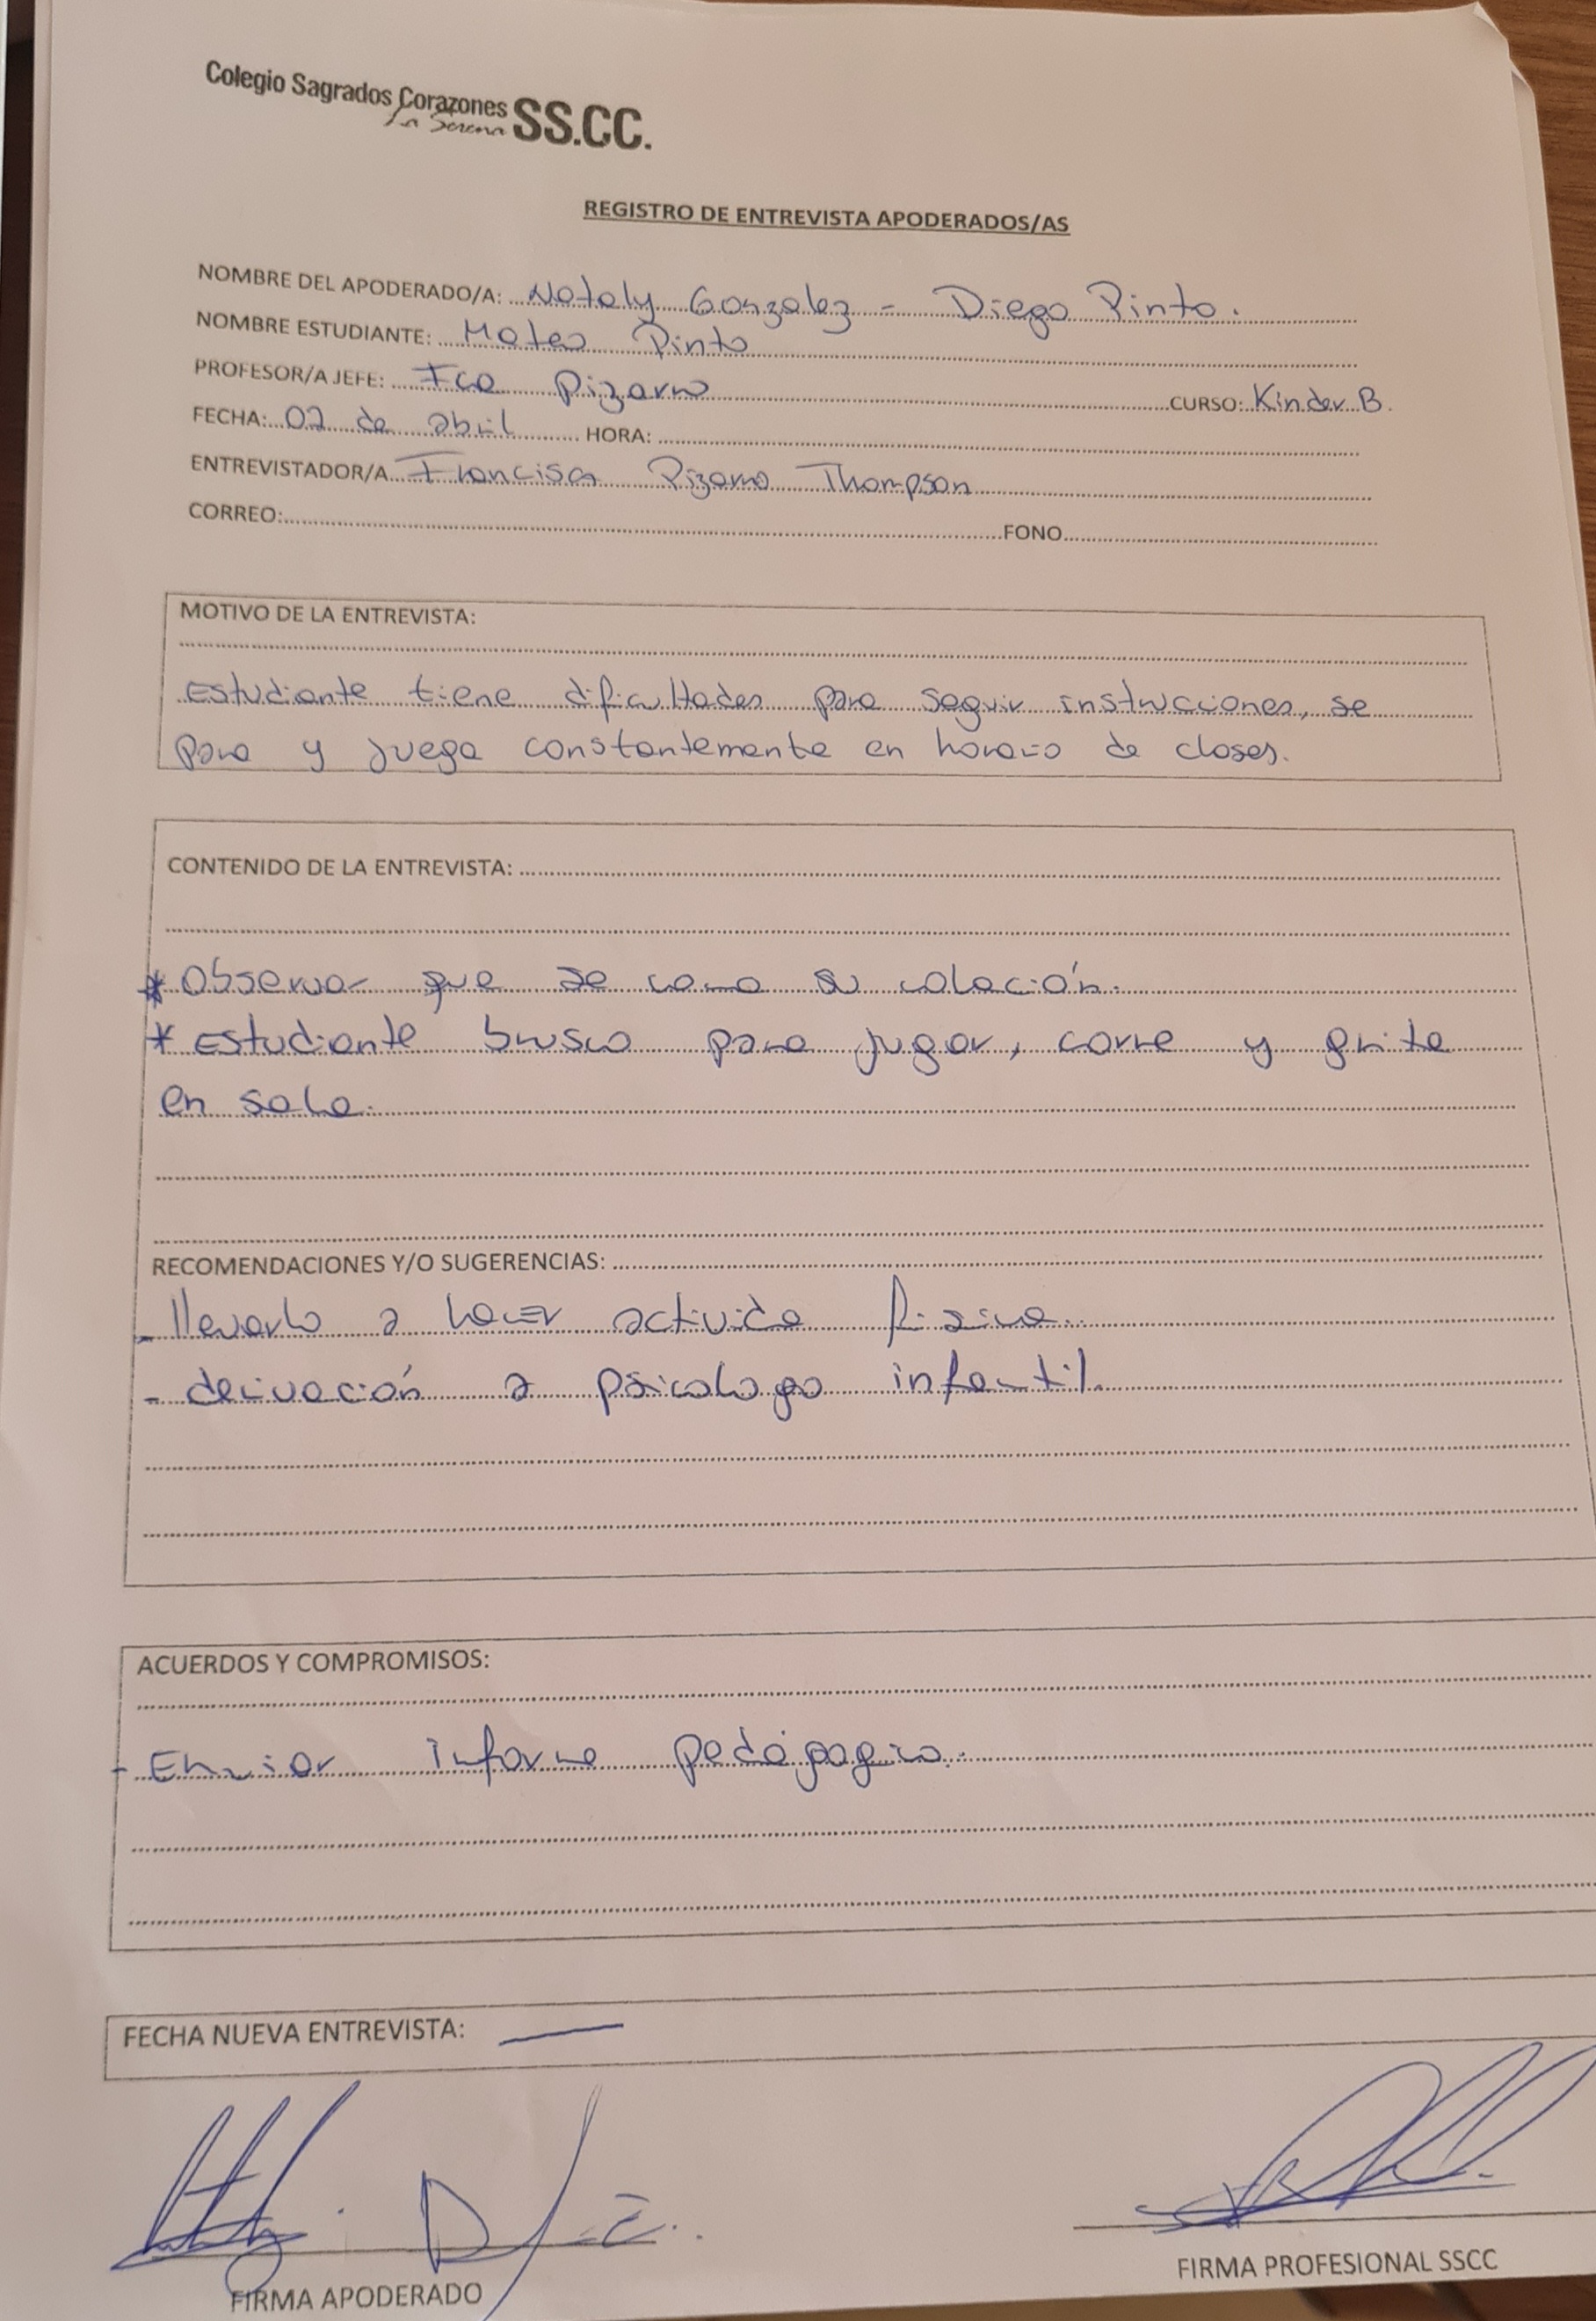 Colegio Sagrados Corazones SS.CC.
La Serena
REGISTRO DE ENTREVISTA APODERADOS/AS
NOMBRE DEL APODERADO/A: Nataly Gonzalez - Diego Pinto.
NOMBRE ESTUDIANTE: Mateo Pinto
PROFESOR/A JEFE: Fca Pizarro CURSO: Kinder B.
FECHA: 02 de abril HORA:
ENTREVISTADOR/A Francisca Pizarro Thompson
CORREO: FONO
MOTIVO DE LA ENTREVISTA:
Estudiante tiene dificultades para seguir instrucciones, se
para y juega constantemente en horario de clases.
CONTENIDO DE LA ENTREVISTA:
* Observar que se coma su colación.
* Estudiante brusco para jugar, corre y grita
en sala.
RECOMENDACIONES Y/O SUGERENCIAS:
- llevarlo a hacer activida física.
- derivación a psicologo infantil.
ACUERDOS Y COMPROMISOS:
- Enviar informe pedagogico.
FECHA NUEVA ENTREVISTA: —
FIRMA APODERADO
FIRMA PROFESIONAL SSCC